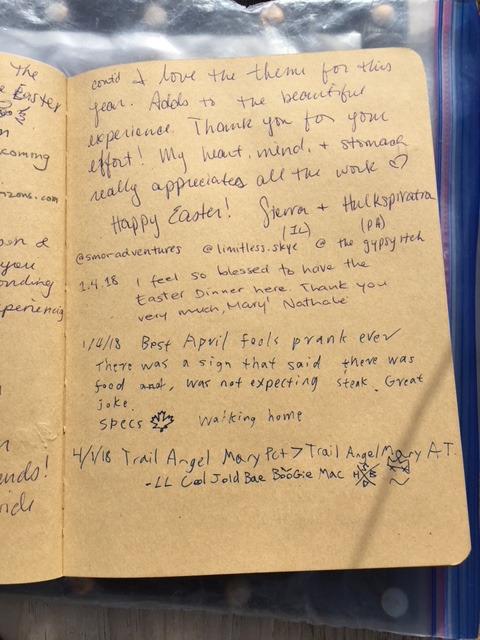 the
Easter
coming
izons.com
you
onding
xperiencing
ends!
cont'd I love the theme for this
year. Adds to the beautiful
experience. Thank you for your
effort! My heart, mind, + stomach
really appreciates all the work ♡
Happy Easter! Sierra + Hulkspiration
(IL) (PA)
@smoradventures @limitless.skye @ the gypsy itch
1.4.18 I feel so blessed to have the
Easter Dinner here. Thank you
very much, Mary! Nathalie
1/4/18 Best April fools prank ever
There was a sign that said there was
food and, was not expecting steak. Great
joke.
specs walking home
4/1/18 Trail Angel Mary Pct > Trail Angel Mary A.T.
-LL Cool Jold Bae Boogie Mac